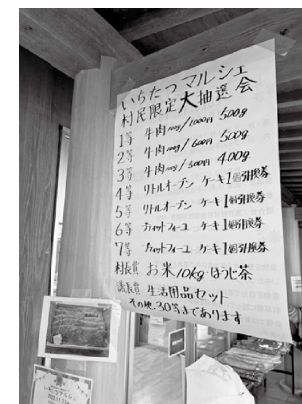 いちたつマルシェ
村民限定大抽選会
1等 牛肉100g/1000円 500g
2等 牛肉100g/600円 500g
3等 牛肉100g/500円 400g
4等 リトルオーブン ケーキ1個引換券
5等 リトルオーブン ケーキ1個引換券
6等 ケーキ1個引換券
7等 ケーキ1個引換券
村長賞 お米10kg・ほうじ茶
議長賞 生活用品セット
その他、30等まであります